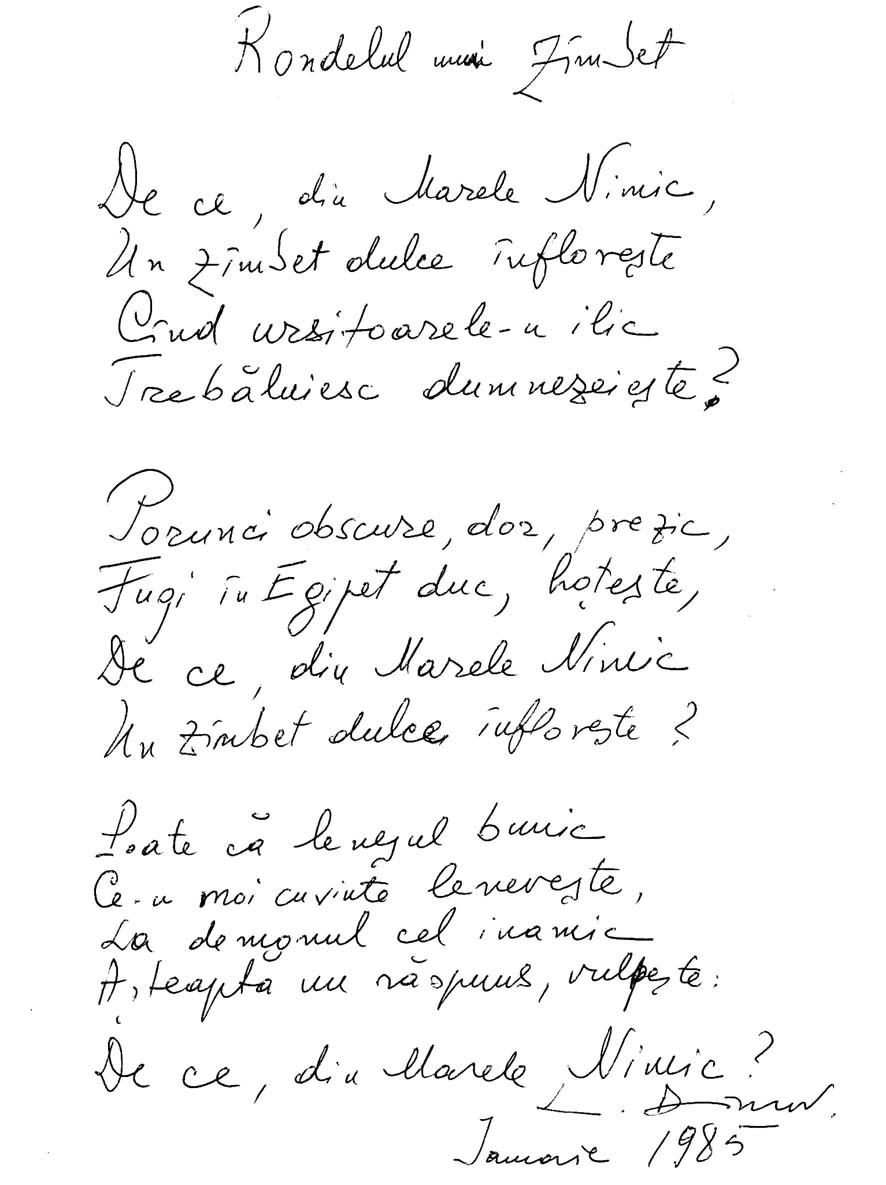 Rondelul unui Zîmbet
De ce, din Marele Nimic,
Un zîmbet dulce înflorește
Cînd ursitoarele-n ilic
Trebăluiesc dumnezeiește?
Porunci obscure, dor, prezic,
Fugi în Egipet duc, hoțește,
De ce, din Marele Nimic
Un zîmbet dulce înflorește?
Poate că leneșul bunic
Ce-n moi cuvinte lenevește,
La demonul cel inamic
Așteaptă un răspuns, vulpește:
De ce, din Marele Nimic?
L. Dimov.
Ianuarie 1985